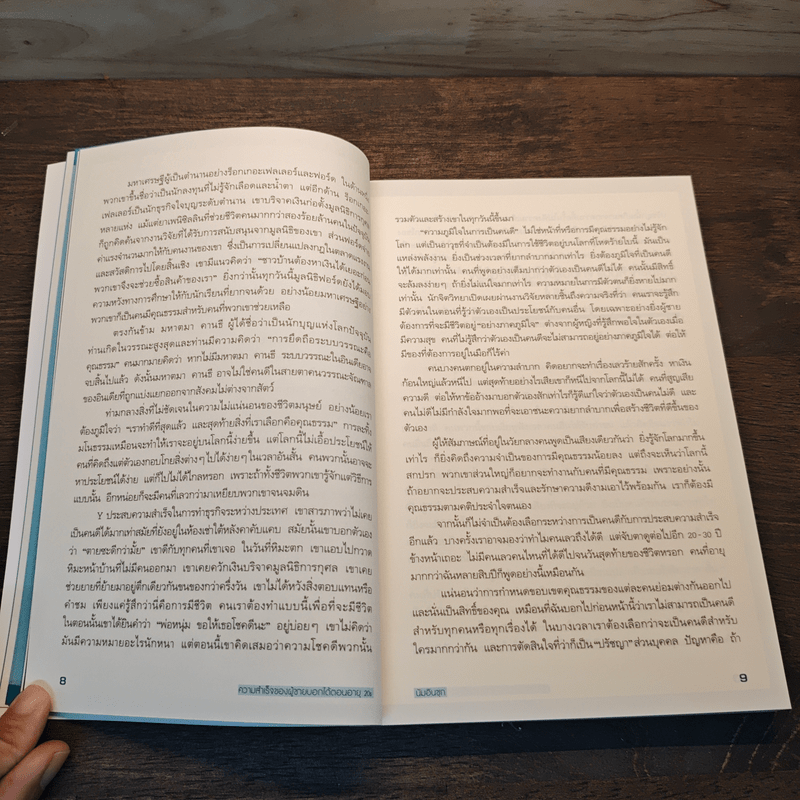 มหาเศรษฐีผู้เป็นตำนานอย่างร็อกเกอะเฟลเลอร์และฟอร์ด ในด้านหนึ่ง
พวกเขาขึ้นชื่อว่าเป็นนักลงทุนที่ไม่รู้จักเลือดและน้ำตา แต่อีกด้าน ร็อกเกอะ
เฟลเลอร์เป็นนักธุรกิจใจบุญระดับตำนาน เขาบริจาคเงินก่อตั้งมูลนิธิการกุศล
หลายแห่ง แม้แต่ยาเพนิซิลลินที่ช่วยชีวิตคนมากกว่าสองร้อยล้านคนในปัจจุบัน
ก็ถูกคิดค้นจากงานวิจัยที่ได้รับการสนับสนุนจากมูลนิธิของเขา ส่วนฟอร์ดจ่าย
ค่าแรงจำนวนมากให้กับคนงานของเขา ซึ่งเป็นการเปลี่ยนแปลงกฎในตลาดแรงงาน
และสวัสดิการไปโดยสิ้นเชิง เขามีแนวคิดว่า "ชาวบ้านต้องหาเงินได้เยอะก่อน
พวกเขาจึงจะช่วยซื้อสินค้าของเรา" ยิ่งกว่านั้นทุกวันนี้มูลนิธิฟอร์ดยังได้มอบ
ความหวังทางการศึกษาให้กับนักเรียนที่ยากจนด้วย อย่างน้อยมหาเศรษฐีอย่าง
พวกเขาก็เป็นคนมีคุณธรรมสำหรับคนที่พวกเขาช่วยเหลือ
ตรงกันข้าม มหาตมา คานธี ผู้ได้ชื่อว่าเป็นนักบุญแห่งโลกปัจจุบัน
ท่านเกิดในวรรณะสูงสุดและท่านมีความคิดว่า "การยึดถือระบบวรรณะคือ
คุณธรรม" คนมากมายคิดว่า หากไม่มีมหาตมา คานธี ระบบวรรณะในอินเดียอาจ
จบสิ้นไปแล้ว ดังนั้นมหาตมา คานธี อาจไม่ใช่คนดีในสายตาคนวรรณะจัณฑาล
ของอินเดียที่ถูกแบ่งแยกออกจากสังคมไม่ต่างจากสัตว์
ท่ามกลางสิ่งที่ไม่ชัดเจนในความไม่แน่นอนของชีวิตมนุษย์ อย่างน้อยเรา
ต้องภูมิใจว่า "เราทำดีที่สุดแล้ว และสุดท้ายสิ่งที่เราเลือกคือคุณธรรม" การละทิ้ง
มโนธรรมเหมือนจะทำให้เราจะอยู่บนโลกนี้ง่ายขึ้น แต่โลกนี้ไม่เอื้อประโยชน์ให้
คนที่คิดถึงแต่ตัวเองกอบโกยสิ่งต่างๆ ไปได้ง่ายๆ ในเวลาอันสั้น คนพวกนั้นอาจจะ
หาประโยชน์ได้ง่าย แต่ก็ไปไม่ได้ไกลหรอก เพราะถ้าทั้งชีวิตพวกเขารู้จักแต่วิธีการ
แบบนั้น อีกหน่อยก็จะมีคนที่เลวกว่ามาเหยียบพวกเขาจนจมดิน
Y ประสบความสำเร็จในการทำธุรกิจระหว่างประเทศ เขาสารภาพว่าไม่เคย
เป็นคนดีได้มากเท่าสมัยที่ยังอยู่ในห้องเช่าใต้หลังคาคับแคบ สมัยนั้นเขาบอกตัวเอง
ว่า "ตายซะดีกว่ามั้ย" เขาดีกับทุกคนที่เขาเจอ ในวันที่หิมะตก เขาแอบไปกวาด
หิมะหน้าบ้านที่ไม่มีคนออกมา เขาเคยควักเงินบริจาคมูลนิธิการกุศล เขาเคย
ช่วยยายที่ย้ายมาอยู่ตึกเดียวกันขนของกว่าครึ่งวัน เขาไม่ได้หวังสิ่งตอบแทนหรือ
คำชม เพียงแค่รู้สึกว่านี่คือการมีชีวิต คนเราต้องทำแบบนี้เพื่อที่จะมีชีวิต
ในตอนนั้นเขาได้ยินคำว่า "พ่อหนุ่ม ขอให้เธอโชคดีนะ" อยู่บ่อยๆ เขาไม่คิดว่า
มันมีความหมายอะไรนักหนา แต่ตอนนี้เขาคิดเสมอว่าความโชคดีพวกนั้น
8
ความสำเร็จของผู้ชายบอกได้ตอนอายุ 20s
รวมตัวและสร้างเขาในทุกวันนี้ขึ้นมา
"ความภูมิใจในการเป็นคนดี" ไม่ใช่หน้าที่หรือการมีคุณธรรมอย่างไม่รู้จัก
โลก แต่เป็นอาวุธที่จำเป็นต้องมีในการใช้ชีวิตอยู่บนโลกที่โหดร้ายใบนี้ มันเป็น
แหล่งพลังงาน ยิ่งเป็นช่วงเวลาที่ยากลำบากมากเท่าไร ยิ่งต้องภูมิใจที่เป็นคนดี
ให้ได้มากเท่านั้น คนที่พูดอย่างเต็มปากว่าตัวเองเป็นคนดีไม่ได้ คนนั้นมีสิทธิ์
จะล้มลงง่ายๆ ถ้ายิ่งไม่แน่ใจมากเท่าไร ความหมายในการมีตัวตนก็ยิ่งหายไปมาก
เท่านั้น นักจิตวิทยาเปิดเผยผ่านงานวิจัยหลายชิ้นถึงความจริงที่ว่า คนเราจะรู้สึก
มีตัวตนในตอนที่รู้ว่าตัวเองเป็นประโยชน์กับคนอื่น โดยเฉพาะอย่างยิ่งผู้ชาย
ต้องการที่จะมีชีวิตอยู่ "อย่างภาคภูมิใจ" ต่างจากผู้หญิงที่รู้สึกพอใจในตัวเองเมื่อ
มีความสุข คนที่ไม่รู้สึกว่าตัวเองเป็นคนดีจะไม่สามารถอยู่อย่างภาคภูมิใจได้ ต่อให้
มีของที่ต้องการอยู่ในมือก็ไร้ค่า
คนบางคนตกอยู่ในความลำบาก คิดอยากจะทำเรื่องเลวร้ายสักครั้ง หาเงิน
ก้อนใหญ่แล้วหนีไป แต่สุดท้ายอย่างไรเสียเขาก็หนีไปจากโลกนี้ไม่ได้ คนที่สูญเสีย
ความดี ต่อให้หาข้ออ้างมาบอกตัวเองสักเท่าไรก็รู้ดีแก่ใจว่าตัวเองเป็นคนไม่ดี และ
คนไม่ดีไม่มีกำลังใจมากพอที่จะเอาชนะความยากลำบากเพื่อสร้างชีวิตที่ดีขึ้นของ
ตัวเอง
ผู้ให้สัมภาษณ์ที่อยู่ในวัยกลางคนพูดเป็นเสียงเดียวกันว่า ยิ่งรู้จักโลกมากขึ้น
เท่าไร ก็ยิ่งคิดถึงความจำเป็นของการมีคุณธรรมน้อยลง แต่ถึงจะเห็นว่าโลกนี้
สกปรก พวกเขาส่วนใหญ่ก็อยากจะทำงานกับคนที่มีคุณธรรม เพราะอย่างนั้น
ถ้าอยากจะประสบความสำเร็จและรักษาความดีงามเอาไว้พร้อมกัน เราก็ต้องมี
คุณธรรมตามคติประจำใจตนเอง
จากนั้นก็ไม่จำเป็นต้องเลือกระหว่างการเป็นคนดีกับการประสบความสำเร็จ
อีกแล้ว บางครั้งเราอาจมองว่าทำไมคนเลวถึงได้ดี แต่จับตาดูต่อไปอีก 20-30 ปี
ข้างหน้าเถอะ ไม่มีคนเลวคนไหนที่ได้ดีไปจนวันสุดท้ายของชีวิตหรอก คนที่อายุ
มากกว่าฉันหลายสิบปีก็พูดอย่างนี้เหมือนกัน
แน่นอนว่าการกำหนดขอบเขตคุณธรรมของแต่ละคนย่อมต่างกันออกไป
และนั่นเป็นสิทธิ์ของคุณ เหมือนที่ฉันบอกไปก่อนหน้านี้ว่าเราไม่สามารถเป็นคนดี
สำหรับทุกคนหรือทุกเรื่องได้ ในบางเวลาเราต้องเลือกว่าจะเป็นคนดีสำหรับ
ใครมากกว่ากัน และการตัดสินใจที่ว่าก็เป็น "ปรัชญา" ส่วนบุคคล ปัญหาคือ ถ้า
นัมอินซุก
9